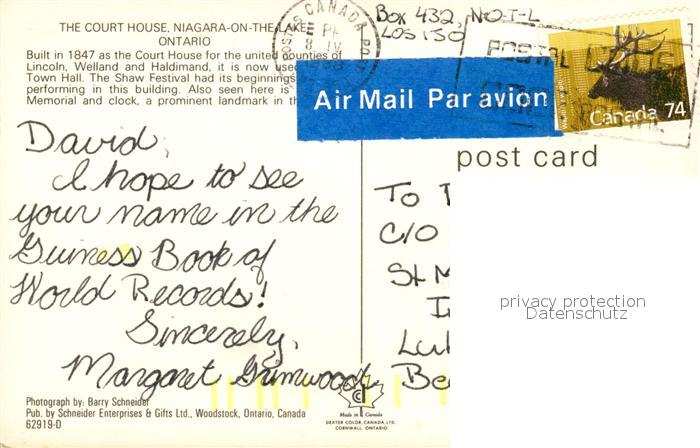 THE COURT HOUSE, NIAGARA-ON-THE-LAKE
ONTARIO
Built in 1847 as the Court House for the united counties of
Lincoln, Welland and Haldimand, it is now used
Town Hall. The Shaw Festival had its beginnings
performing in this building. Also seen here is
Memorial and clock, a prominent landmark in th
CANADA
PM
IV
Box 432, N-O-T-L
LOS 1J0
POSTAL
Air Mail Par avion
Canada 74
post card
David,
I hope to see
your name in the
Guiness Book of
World Records!
Sincerely,
Margaret Grimwood
To
C/O
St M
I
Lu
Be
privacy protection
Datenschutz
Photograph by: Barry Schneider
Pub. by Schneider Enterprises & Gifts Ltd., Woodstock, Ontario, Canada
62919-D
Made in Canada
DEXTER COLOR, CANADA, LTD.
CORNWALL, ONTARIO